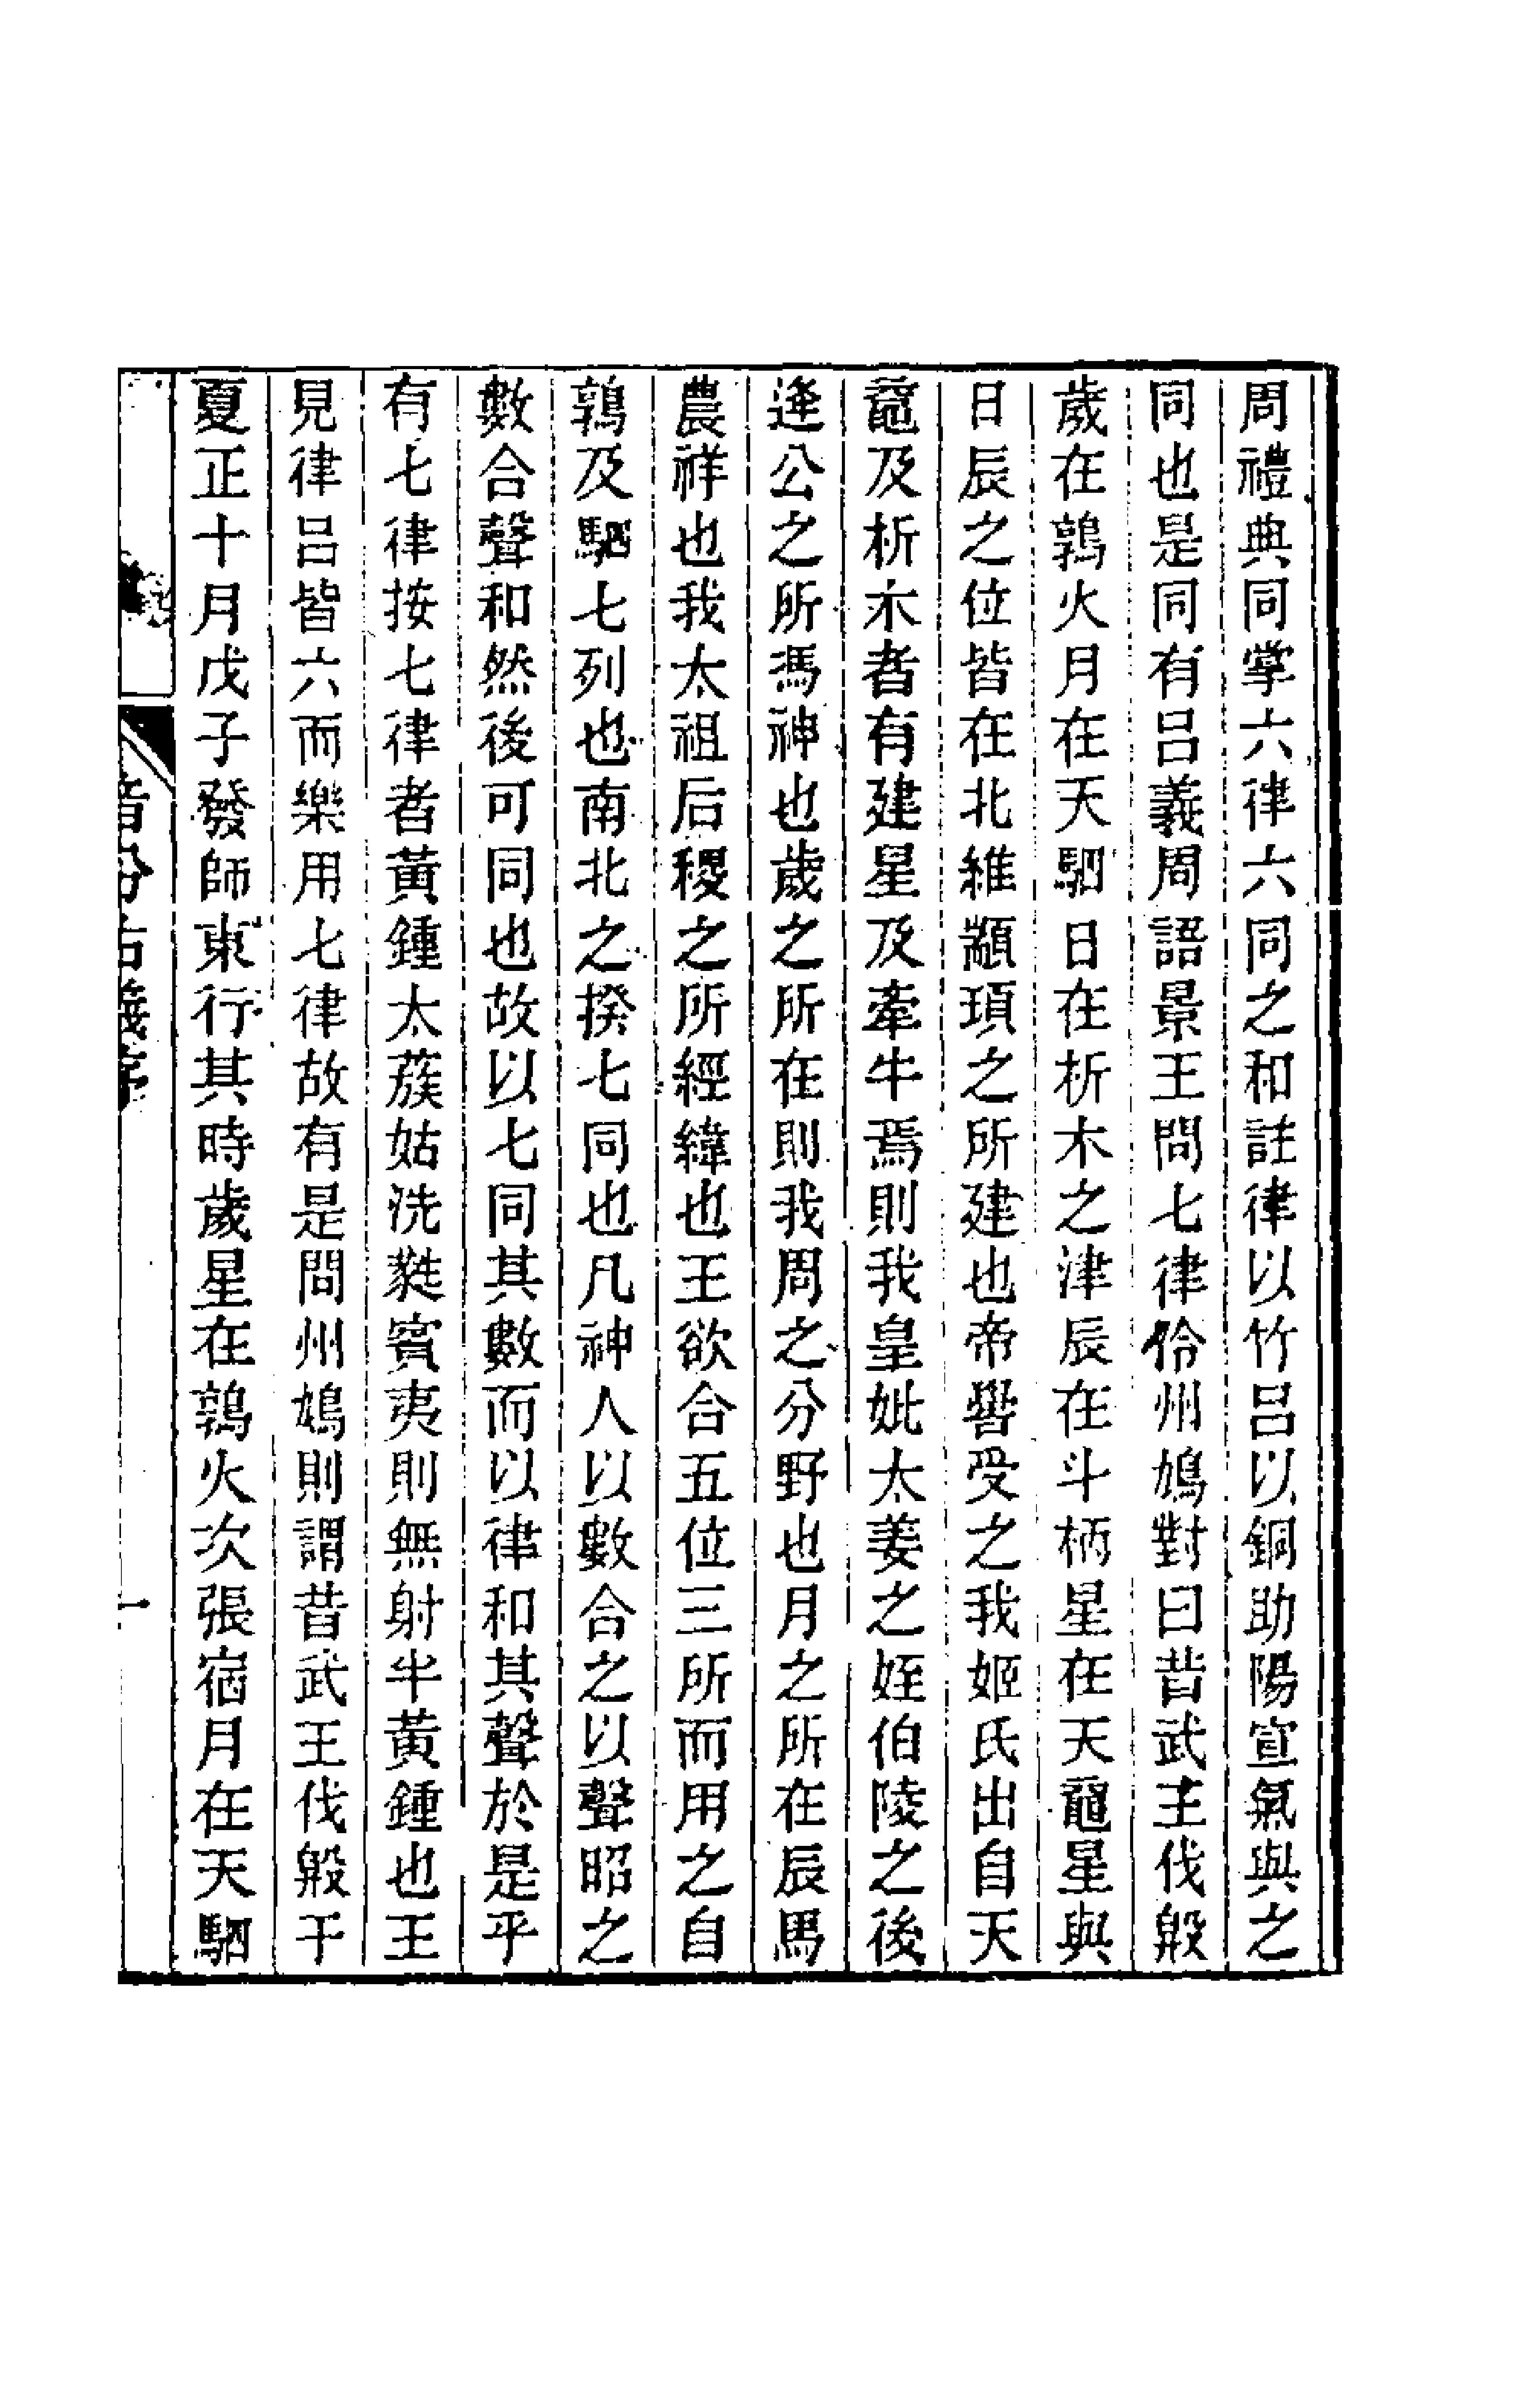 周禮典同掌六律六同之和註律以竹呂以銅助陽宣氣與之
同也是同有呂義周語景王問七律伶州鳩對曰昔武王伐殷
歲在鶉火月在天駟日在析木之津辰在斗柄星在天黿星與
日辰之位皆在北維顓頊之所建也帝嚳受之我姬氏出自天
黿及析木者有建星及牽牛焉則我皇妣太姜之姪伯陵之後
逄公之所馮神也歲之所在則我周之分野也月之所在辰馬
農祥也我太祖后稷之所經緯也王欲合五位三所而用之自
鶉及駟七列也南北之揆七同也凡神人以數合之以聲昭之
數合聲和然後可同也故以七同其數而以律和其聲於是乎
有七律按七律者黃鍾太蔟姑洗蕤賓夷則無射半黃鍾也王
見律呂皆六而樂用七律故有是問州鳩則謂昔武王伐殷于
夏正十月戊子發師東行其時歲星在鶉火次張宿月在天駟
音分古義序
一